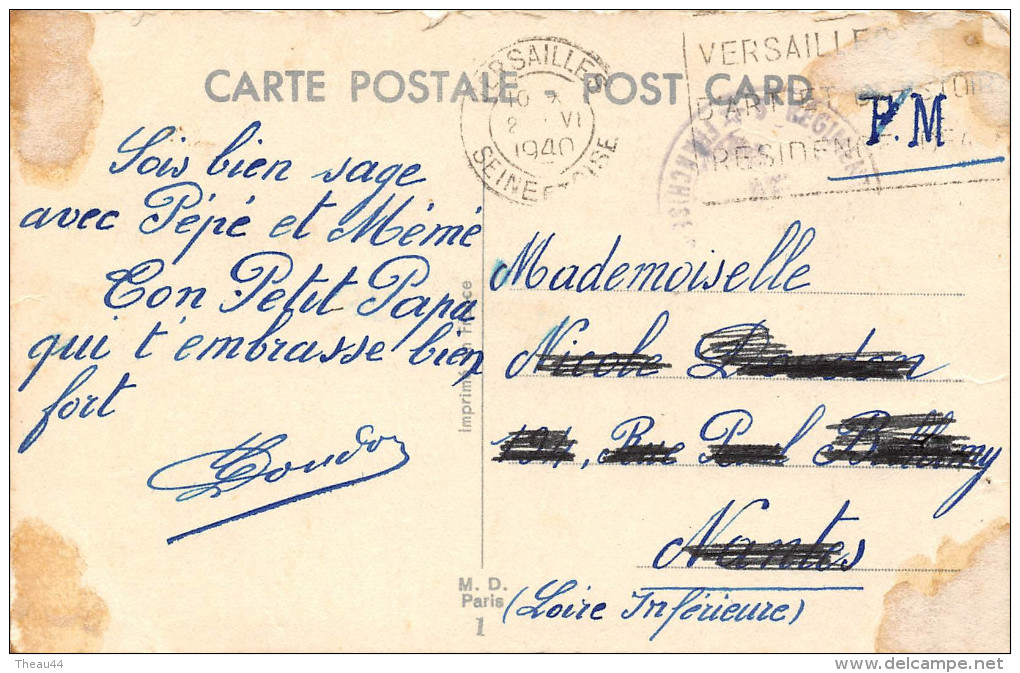 CARTE POSTALE - POST CARD
VERSAILLES
10
VI
1940
SEINE ET OISE
VERSAILLES
D'ART ET
RESIDENCE
REGIMENT
FRANCHISE
F.M
Sois bien sage
avec Pépé et Mémé
Ton Petit Papa
qui t'embrasse bien
fort
Doudon
Imprimé en France
M. D.
Paris
1
Mademoiselle
Nicole
Rue Paul
Nantes
(Loire Inférieure)
Theau44
delcampe.net